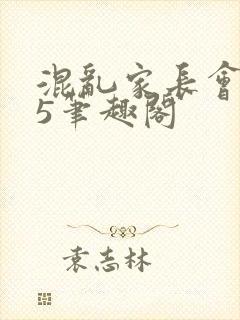 混亂家長會
5筆趣閣
袁志林